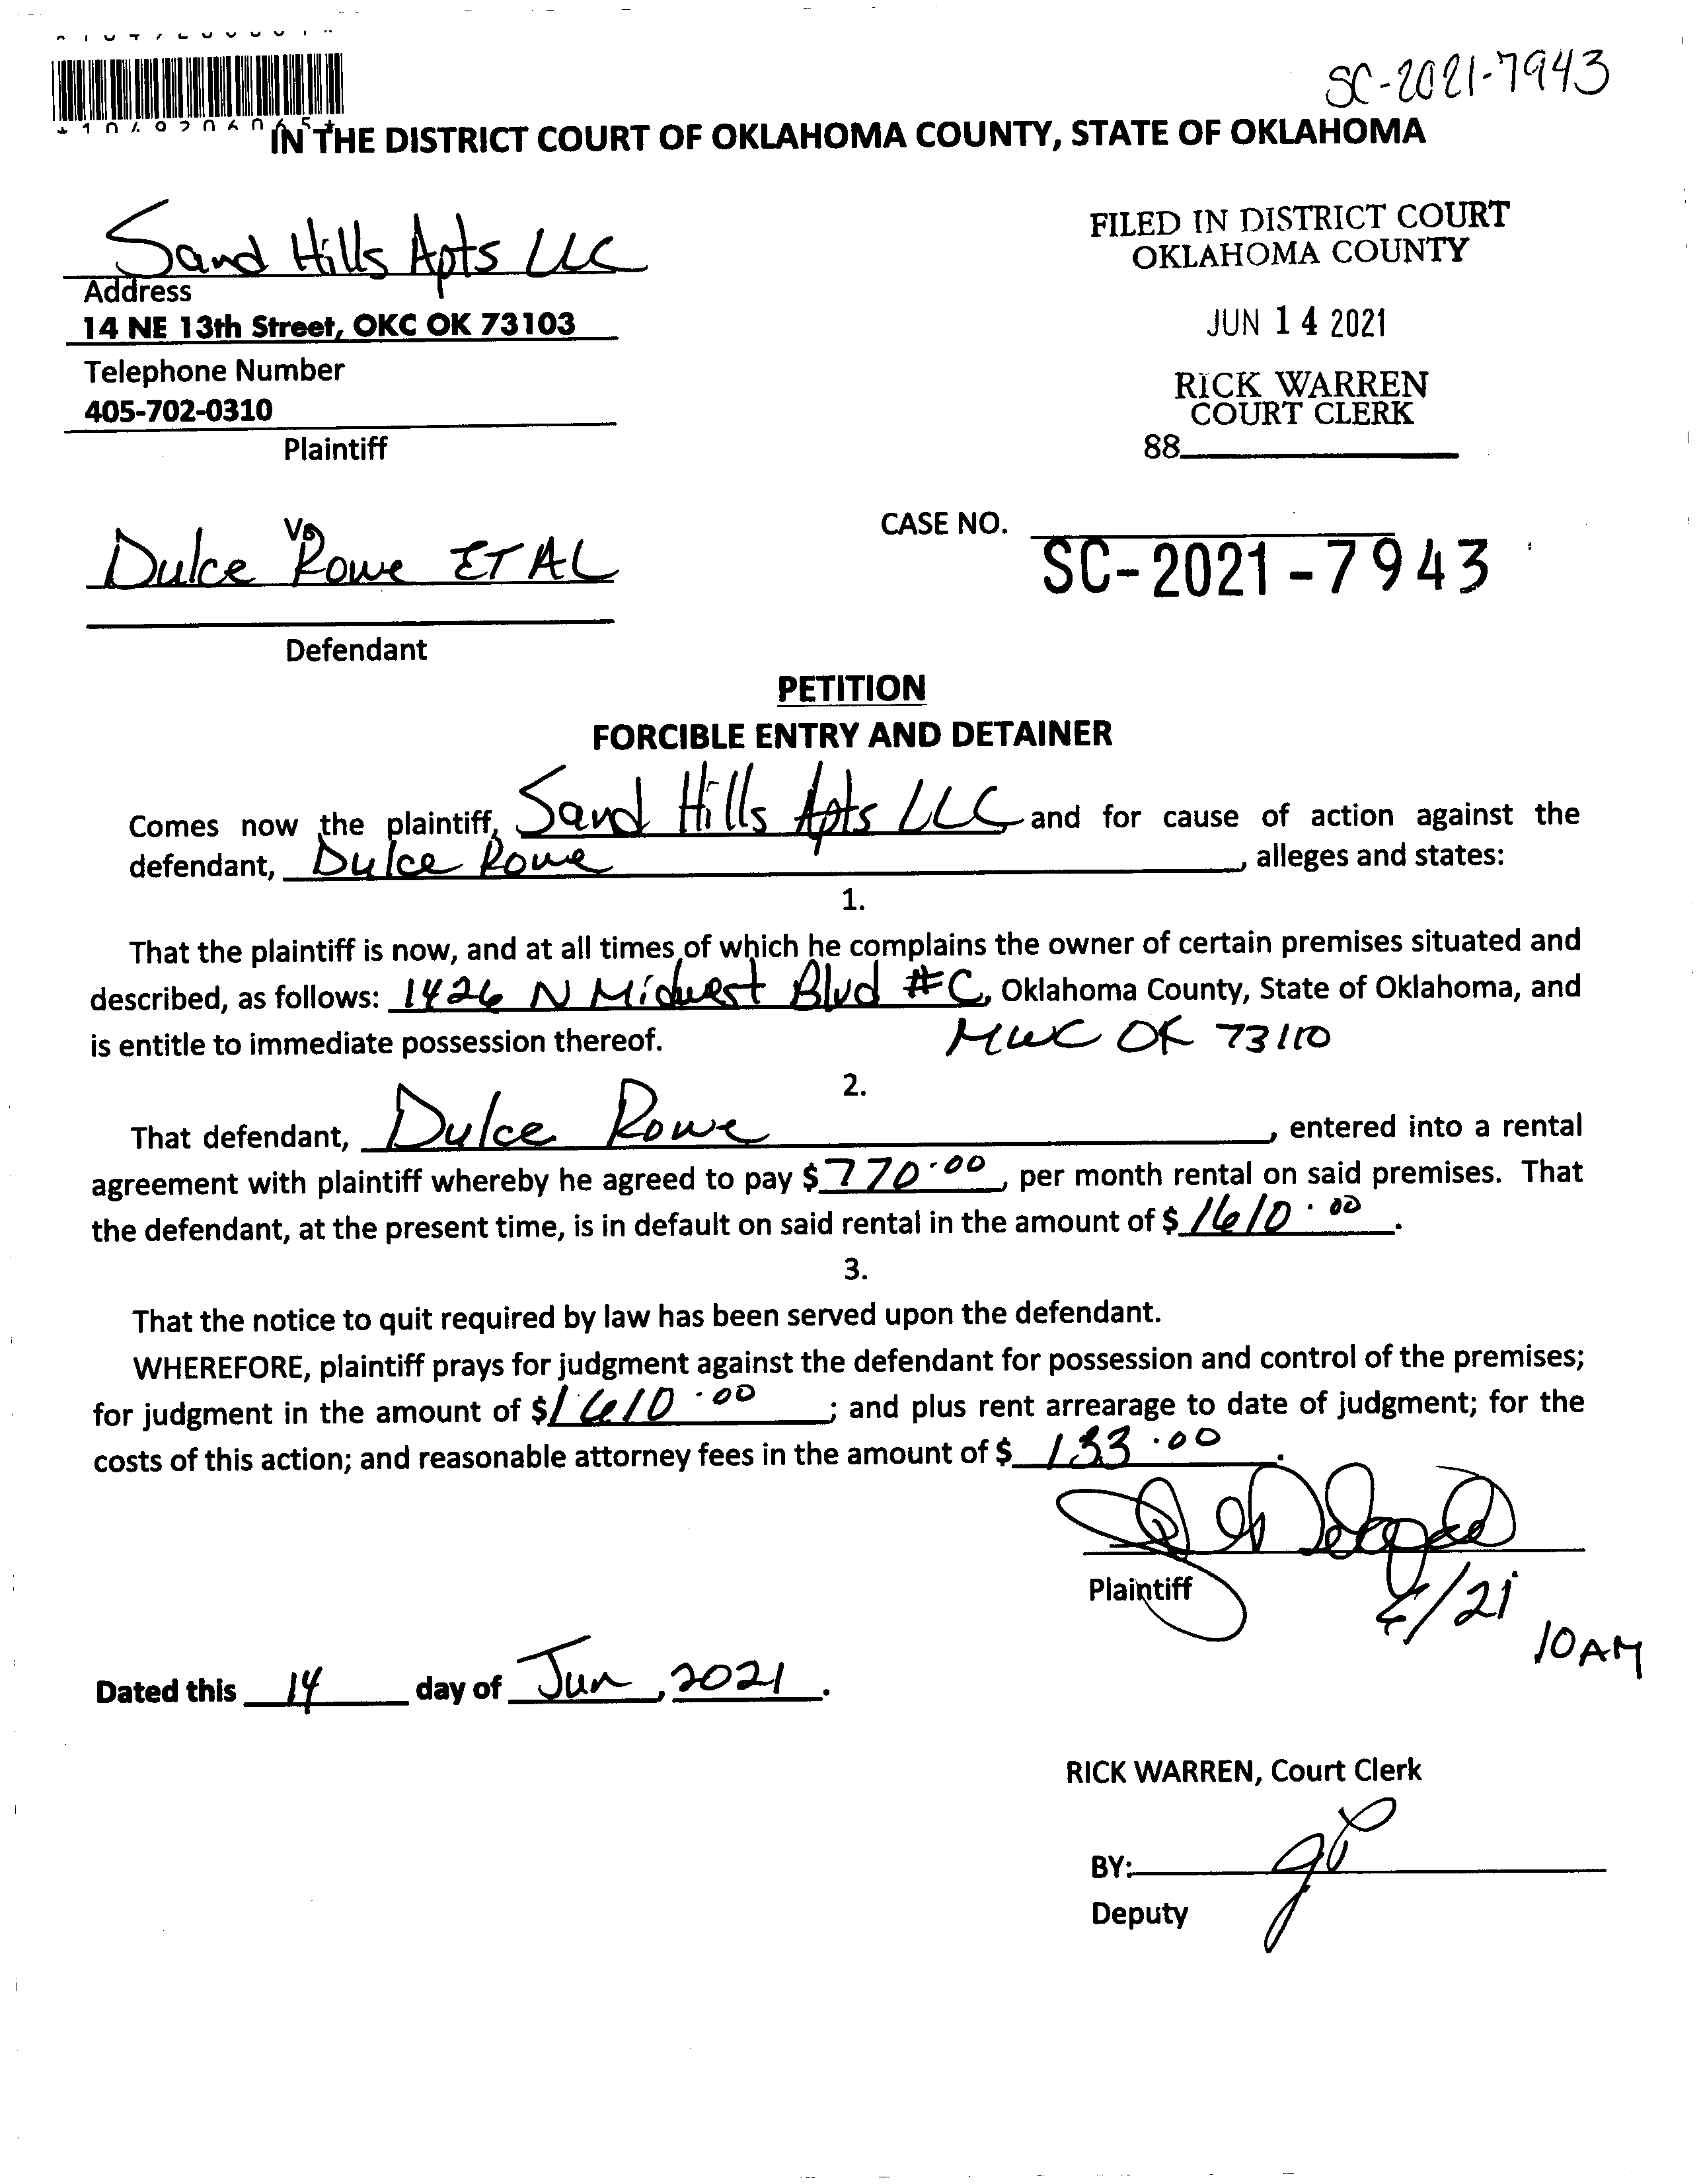 SC-2021-7943
IN THE DISTRICT COURT OF OKLAHOMA COUNTY, STATE OF OKLAHOMA
Sand Hills Apts LLC
Address
14 NE 13th Street, OKC OK 73103
Telephone Number
405-702-0310
Plaintiff
FILED IN DISTRICT COURT
OKLAHOMA COUNTY
JUN 14 2021
RICK WARREN
COURT CLERK
88
VS
Dulce Rowe ET AL
Defendant
CASE NO.
SC-2021-7943
PETITION
FORCIBLE ENTRY AND DETAINER
Comes now the plaintiff, Sand Hills Apts LLC and for cause of action against the
defendant, Dulce Rowe, alleges and states:
1.
That the plaintiff is now, and at all times of which he complains the owner of certain premises situated and
described, as follows: 1426 N Midwest Blvd #C, Oklahoma County, State of Oklahoma, and
is entitle to immediate possession thereof. MWC OK 73110
2.
That defendant, Dulce Rowe, entered into a rental
agreement with plaintiff whereby he agreed to pay $770.00, per month rental on said premises. That
the defendant, at the present time, is in default on said rental in the amount of $1610.00.
3.
That the notice to quit required by law has been served upon the defendant.
WHEREFORE, plaintiff prays for judgment against the defendant for possession and control of the premises;
for judgment in the amount of $1610.00; and plus rent arrearage to date of judgment; for the
costs of this action; and reasonable attorney fees in the amount of $133.00.
Plaintiff
6/21
10AM
Dated this 14 day of Jun, 2021.
RICK WARREN, Court Clerk
BY:
Deputy